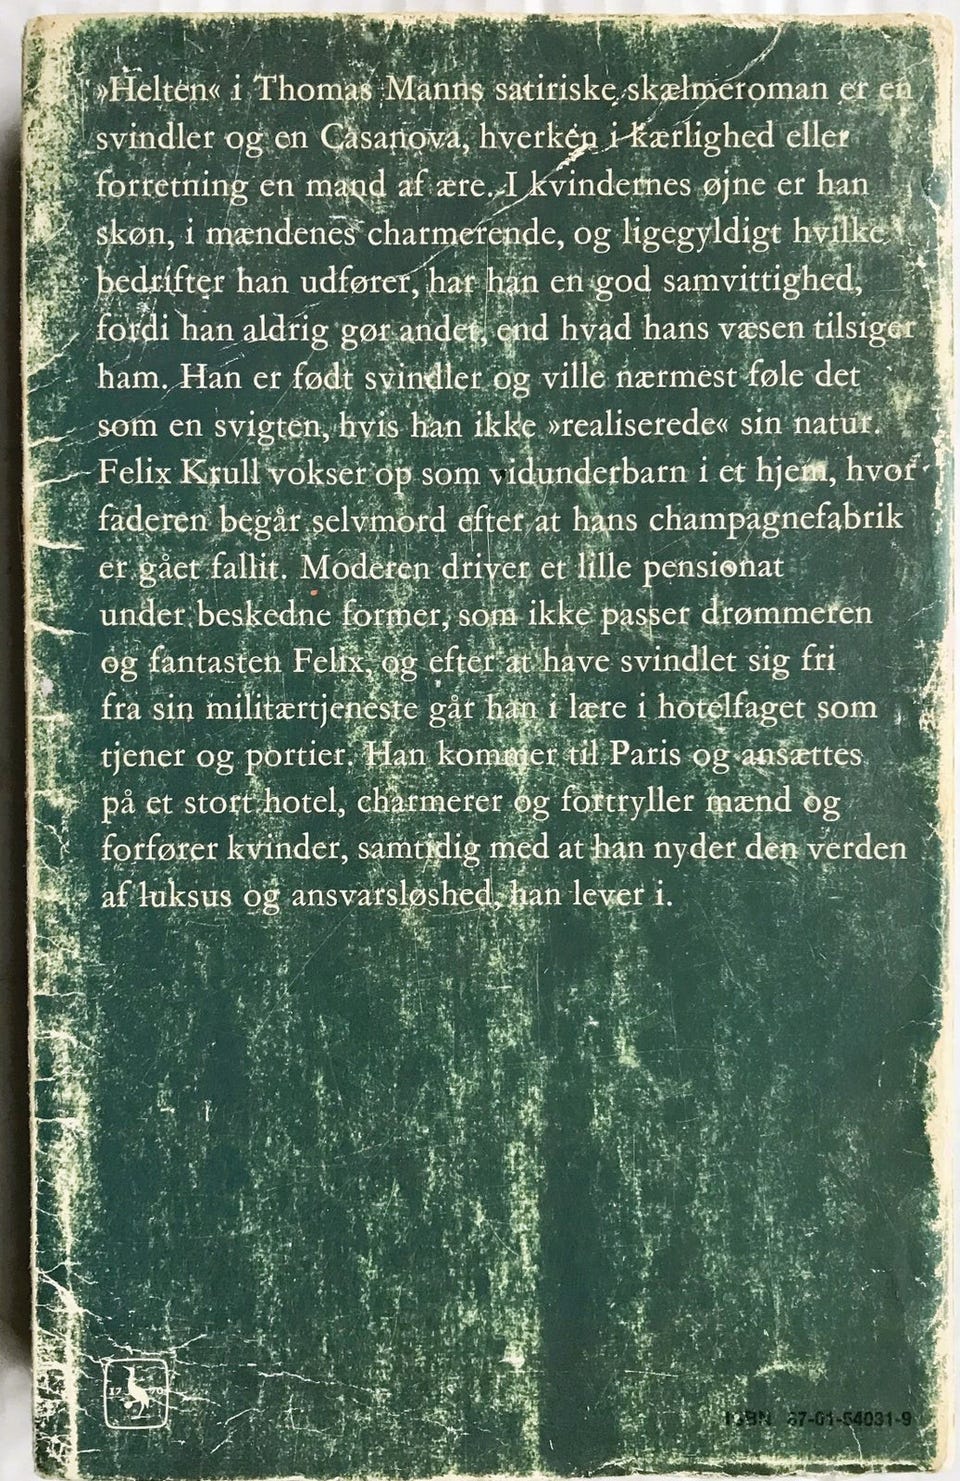 »Helten« i Thomas Manns satiriske skælmeroman er en
svindler og en Casanova, hverken i kærlighed eller
forretning en mand af ære. I kvindernes øjne er han
skøn, i mændenes charmerende, og ligegyldigt hvilke
bedrifter han udfører, har han en god samvittighed,
fordi han aldrig gør andet, end hvad hans væsen tilsiger
ham. Han er født svindler og ville nærmest føle det
som en svigten, hvis han ikke »realiserede« sin natur.
Felix Krull vokser op som vidunderbarn i et hjem, hvor
faderen begår selvmord efter at hans champagnefabrik
er gået fallit. Moderen driver et lille pensionat
under beskedne former, som ikke passer drømmeren
og fantasten Felix, og efter at have svindlet sig fri
fra sin militærtjeneste går han i lære i hotelfaget som
tjener og portier. Han kommer til Paris og ansættes
på et stort hotel, charmerer og fortryller mænd og
forfører kvinder, samtidig med at han nyder den verden
af luksus og ansvarsløshed, han lever i.
17 70
ISBN 87-01-54031-9